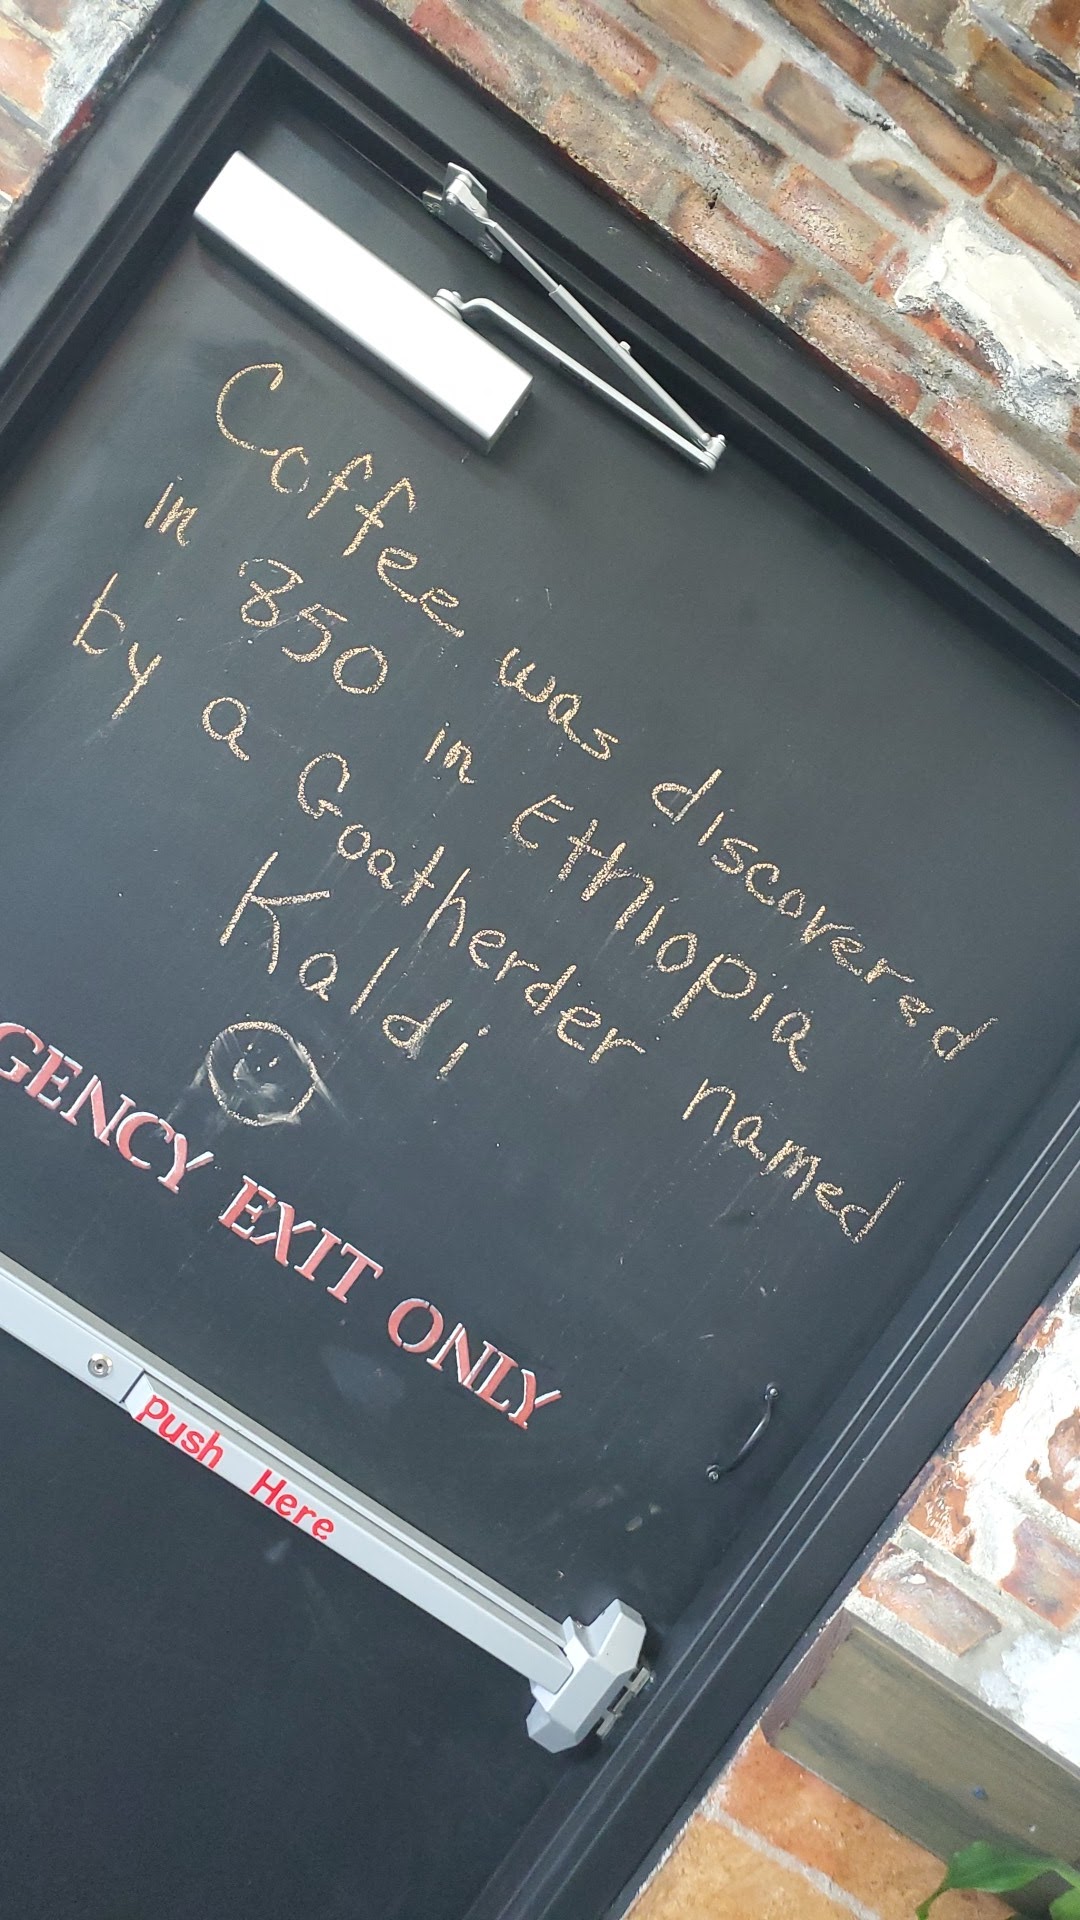 Coffee was discovered
in 850 in Ethiopia
by a Goatherder named
Kaldi
GENCY EXIT ONLY
Push Here